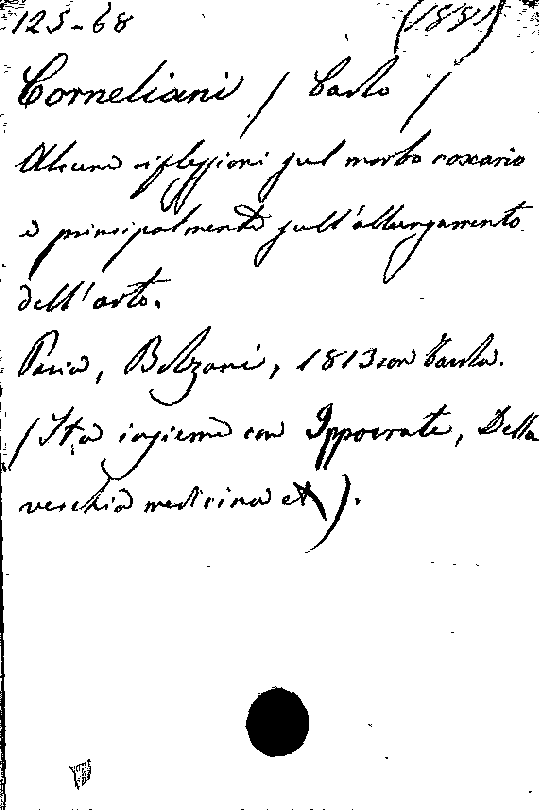 125-68 (1881)
Corneliani / Carlo /
Alcune riflessioni sul morbo coxario
e principalmente sull'allungamento
dell'arto.
Pavia, Bolzani, 1813 con tavola.
(Sta insieme con Ippocrate, Della
vecchia medicina etc).